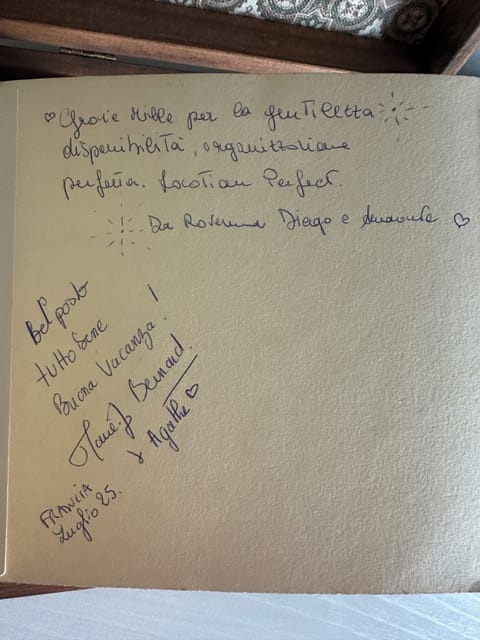 ♡ Grazie Mille per la gentilezza
disponibilità, organizzazione
perfetta. Location Perfect.
Da Ravenna Diago e ♡
Bel posto
tutto bene
Buona Vacanza!
Bernard.
& Agathe ♡
FRANCIA
Luglio 25.